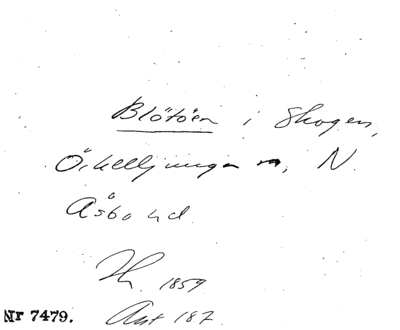 Blötöen i Skogen,
Örkelljunga sn, N.
Åsbo hd.
1859
Nr 7479. Ant 187